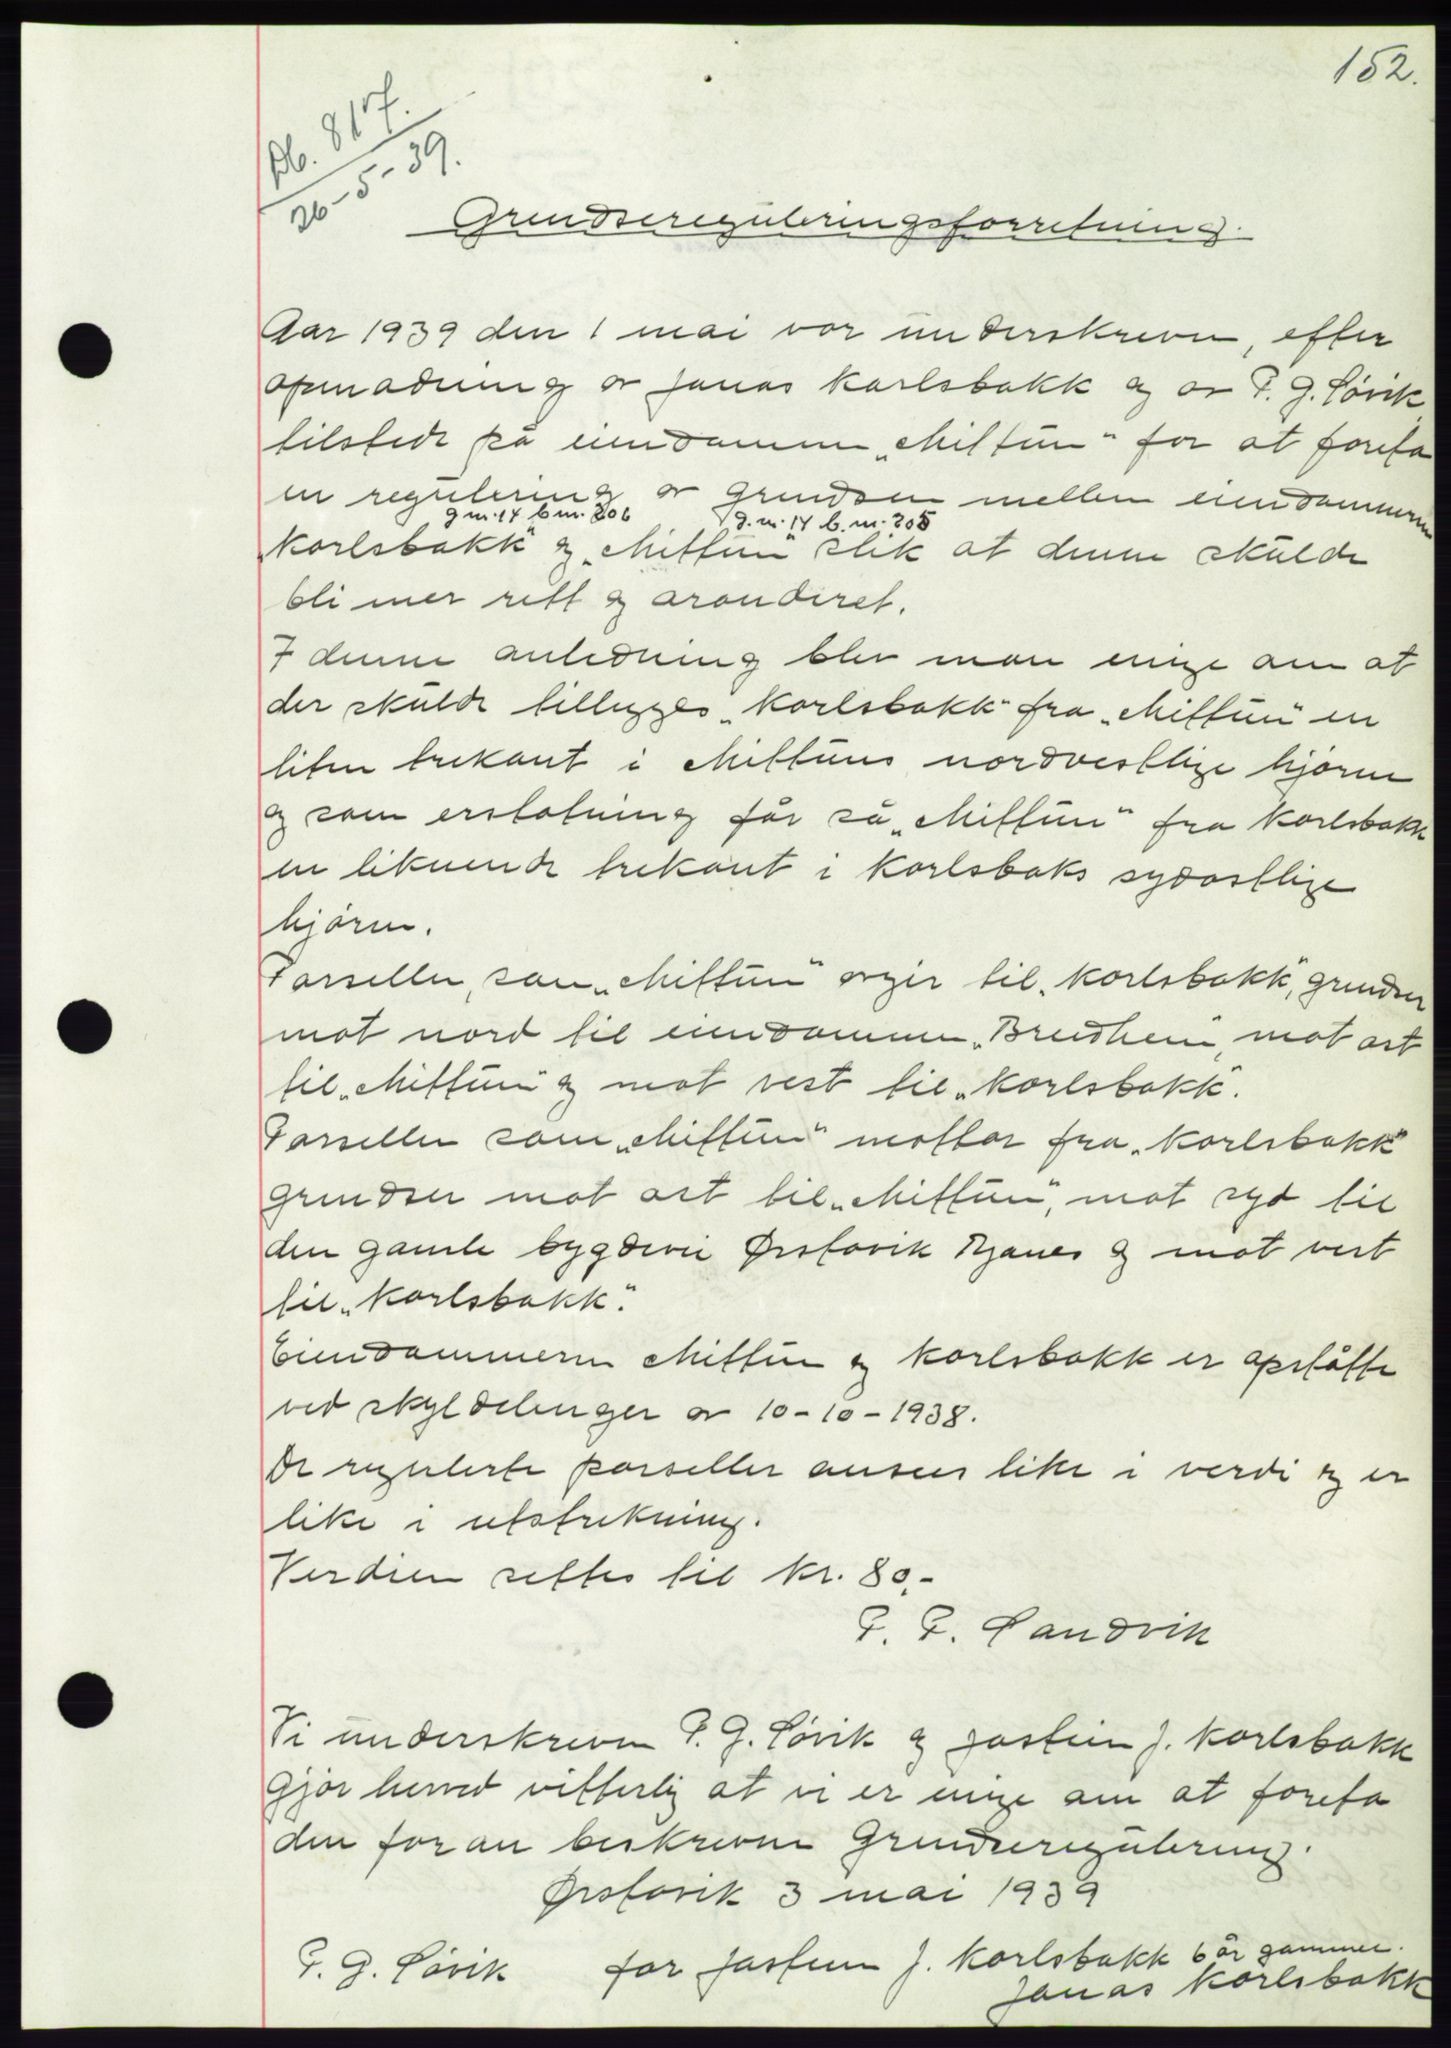 152.
Db. 817.
26-5-39.
Grundsereguleringsforretning.
Aar 1939 den 1 mai var underskreven, efter
opmodning av Jonas Karlsbakk og av P. G. Søvik,
tilstede på eiendommen „Mittun“ for at foreta
en regulering av grendsen mellem eiendommerne
g.nr. 14 b.nr. 206 g.nr. 14 b.nr. 205
„Karlsbakk“ og „Mittun“ slik at denne skulde
bli mer rett og aronderet.
I denne anledning blev man enige om at
der skulde tillegges „Karlsbakk“ fra „Mittun“ en
liten trekant i Mittuns nordvestlige hjørne
og som erstatning får så „Mittun“ fra Karlsbakk
en liknende trekant i Karlsbaks sydostlige
hjørne.
Parsellen, som „Mittun“ avgir til „Karlsbakk“, grendser
mot nord til eiendommen „Breidheim“, mot ost
til „Mittun“ og mot vest til „Karlsbakk“.
Parsellen som „Mittun“ mottar fra „Karlsbakk“
grendser mot ost til „Mittun“, mot syd til
den gamle bygdevei Ørstavik Rjånes og mot vest
til „Karlsbakk“.
Eiendommerne Mittun og Karlsbakk er opståtte
ved skyldelinger av 10-10-1938.
De regulerte parseller ansees like i verdi og er
like i utstrekning.
Verdien settes til kr. 80,-
P. P. Sandvik
Vi underskrevne P. G. Søvik og Jostein J. Karlsbakk
gjør herved vitterlig at vi er enige om at foreta
den foran beskrevne Grendseregulering.
Ørstavik 3 mai 1939
P. G. Søvik for Jostein J. Karlsbakk 6 år gammel.
Jonas Karlsbakk